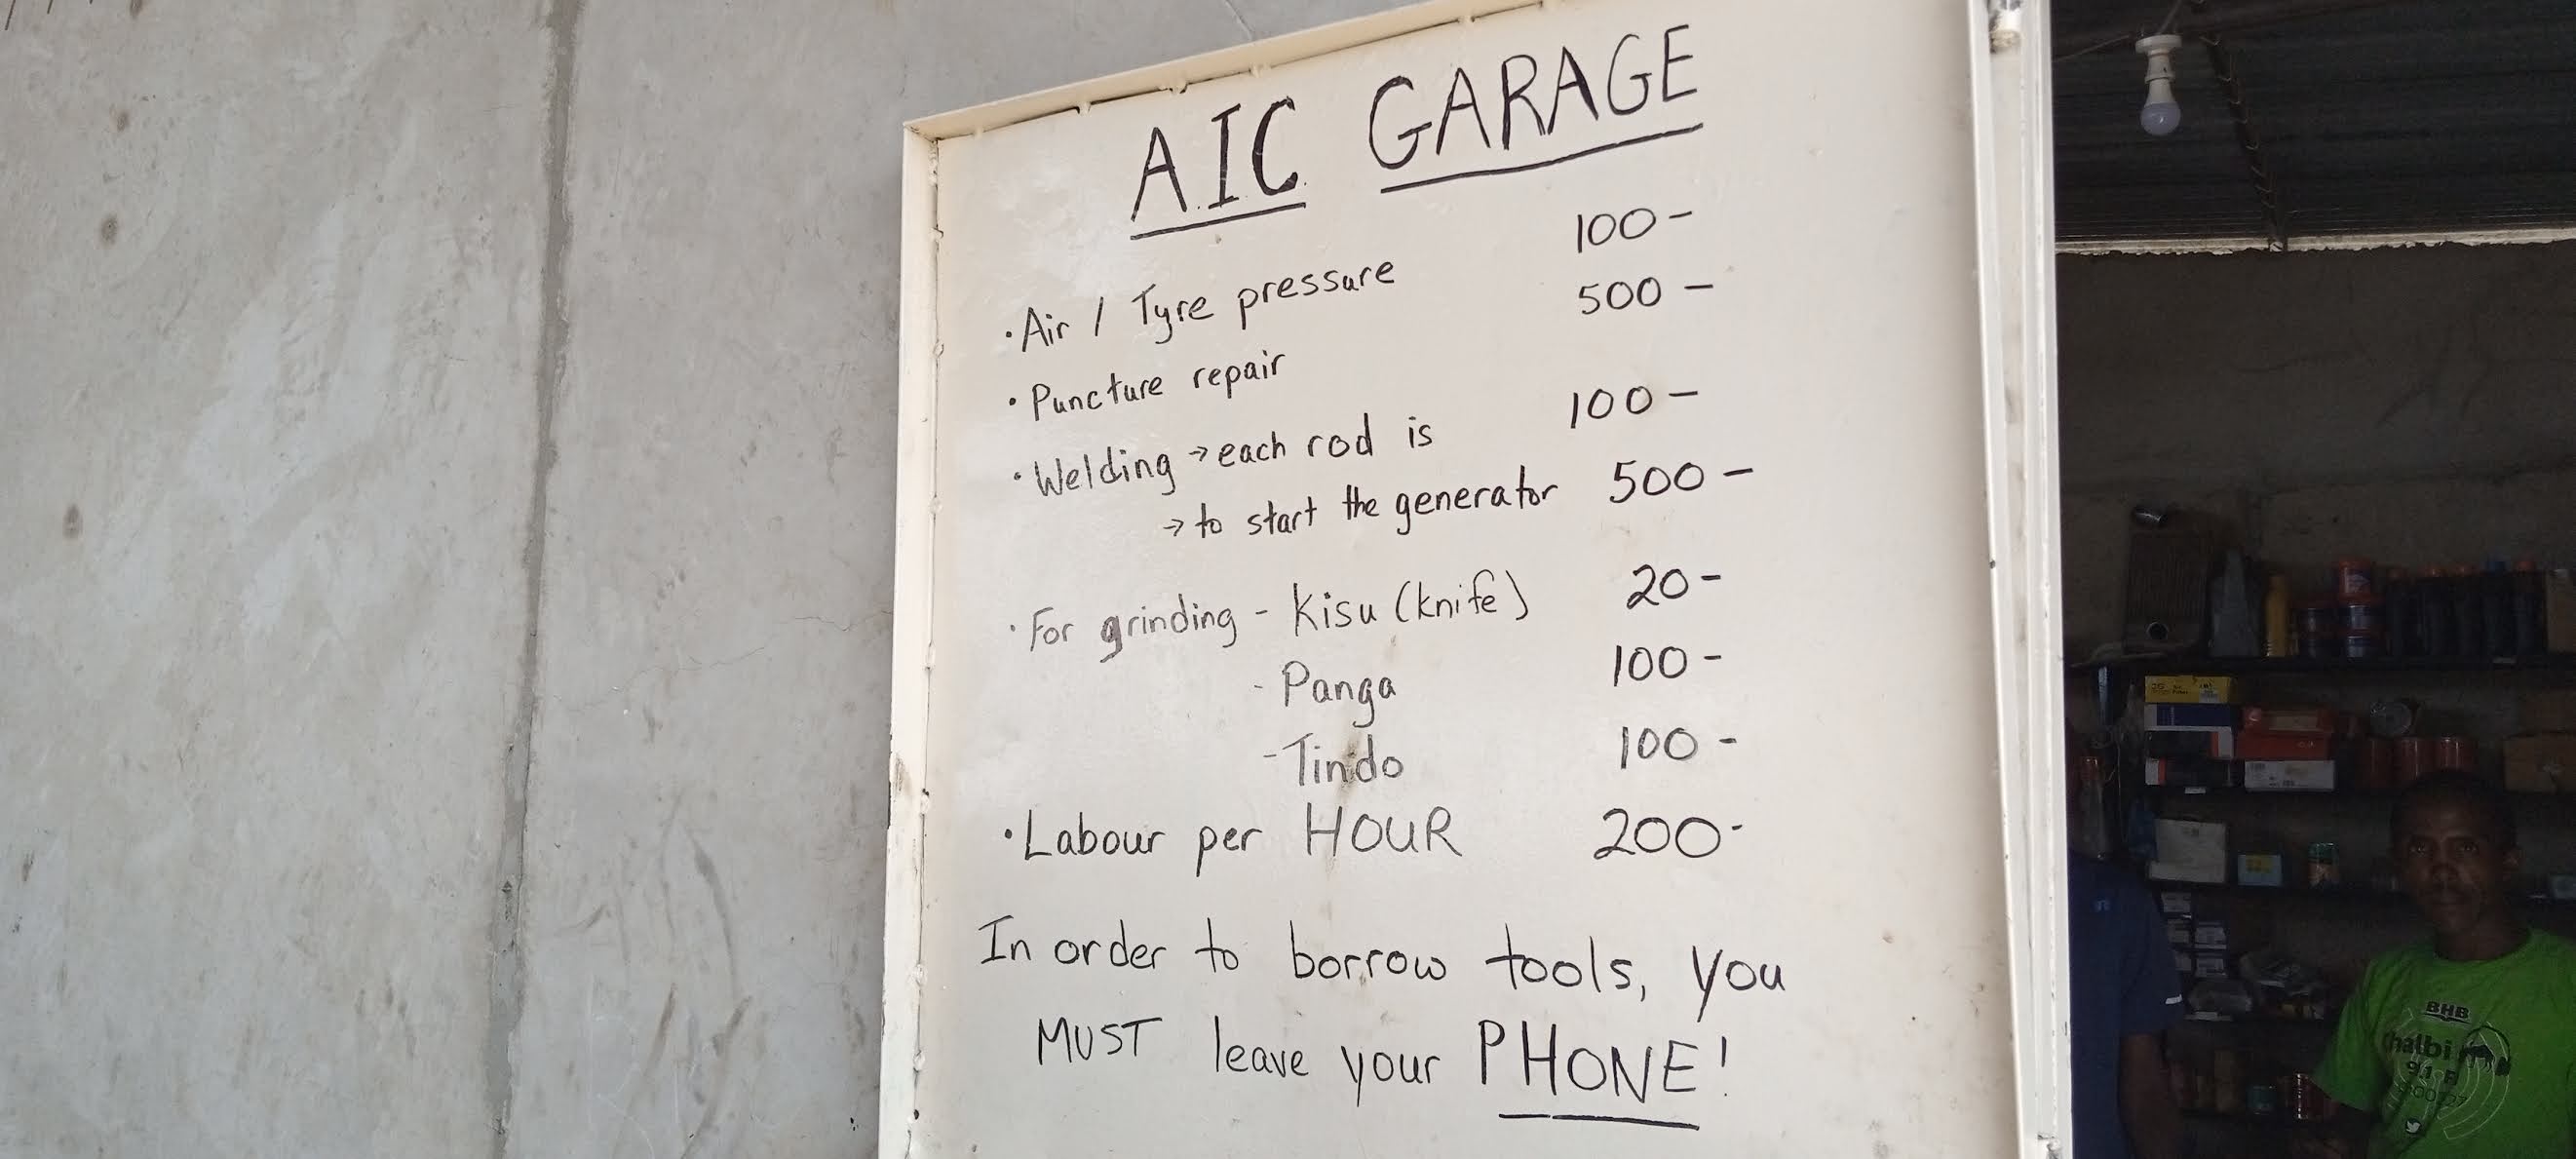 AIC GARAGE
• Air / Tyre pressure 100-
• Puncture repair 500-
• Welding → each rod is 100-
→ to start the generator 500-
• For grinding - Kisu (knife) 20-
- Panga 100-
- Tindo 100-
• Labour per HOUR 200-
In order to borrow tools, you
MUST leave your PHONE!
BHB